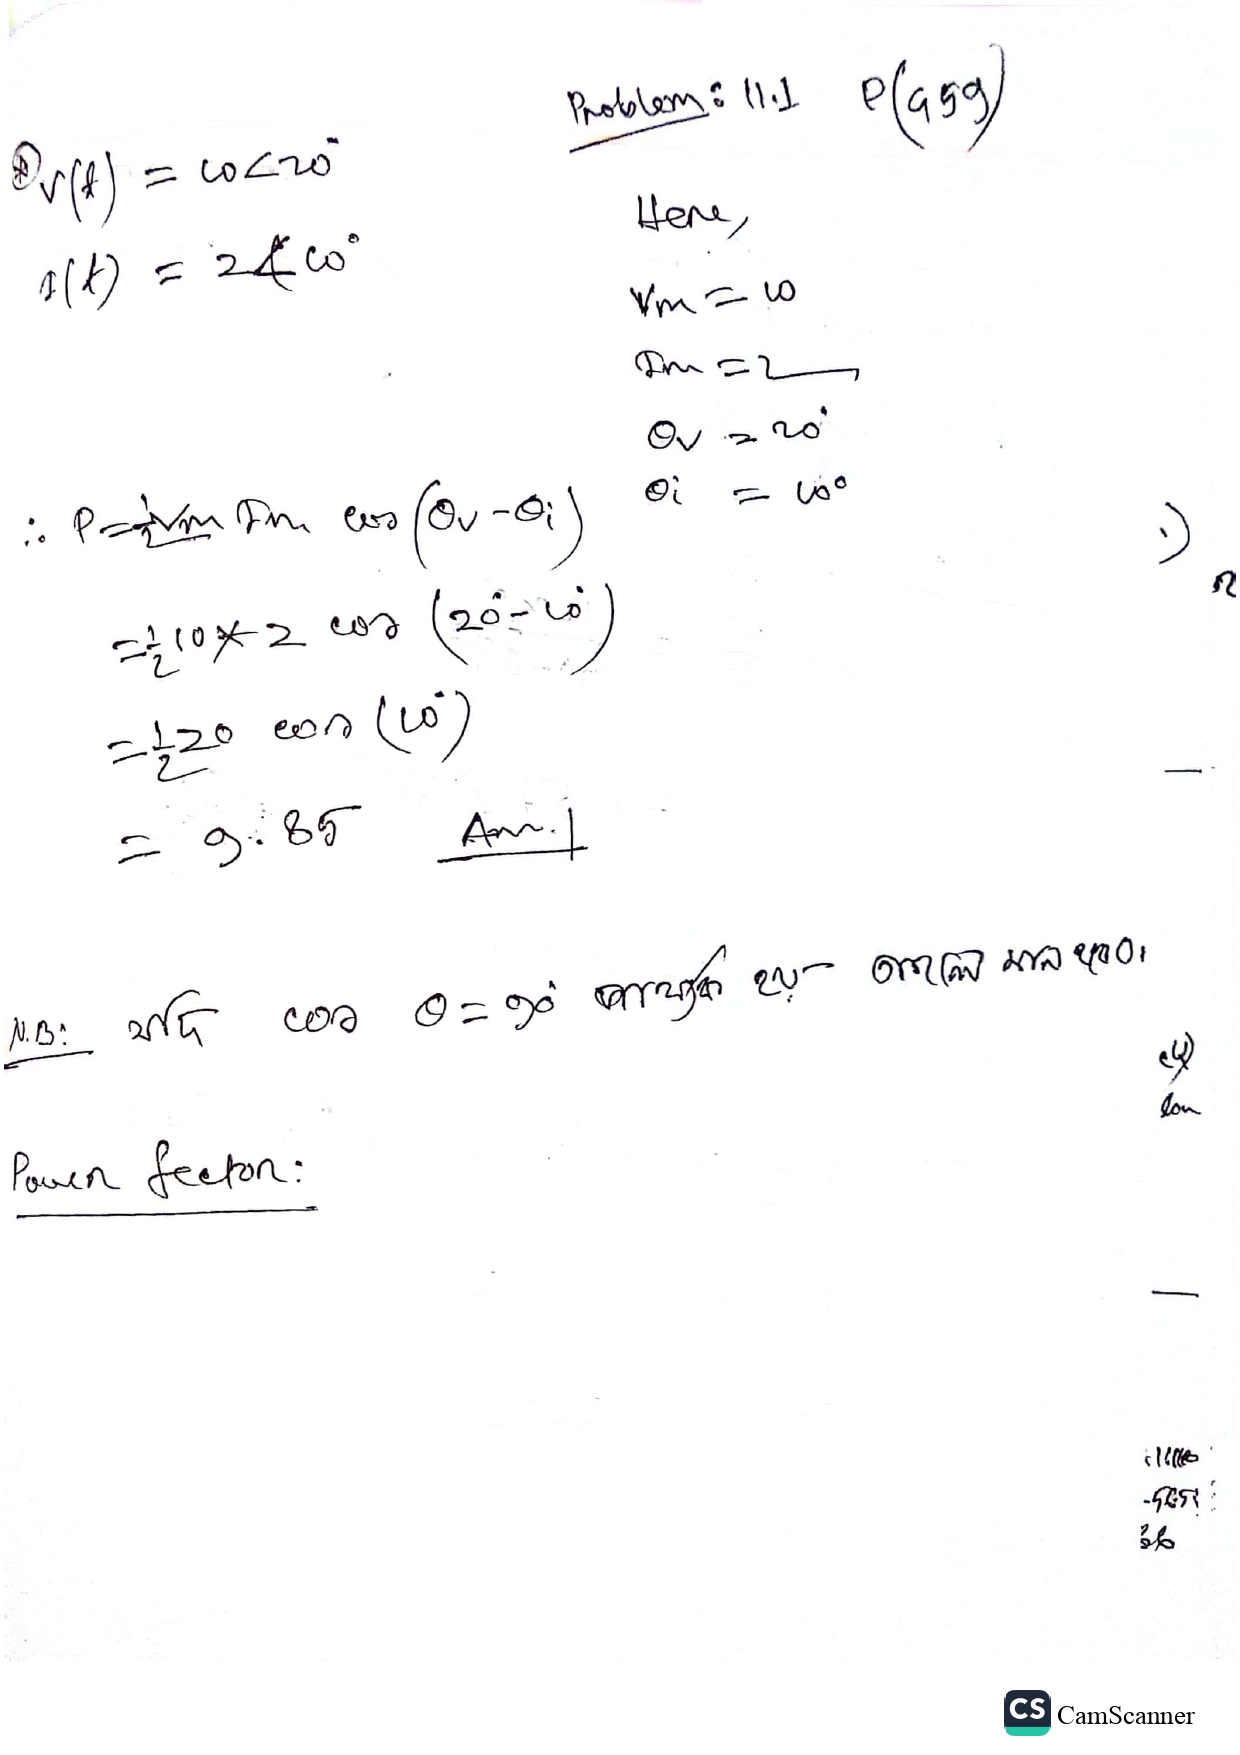 Problem: 11.1 P(459)
v(t) = 10<20°
i(t) = 2∠10°
Here,
Vm = 10
Im = 2
θv = 20°
θi = 10°
∴ P = 1/2 Vm Im cos (θv - θi)
= 1/2 10 * 2 cos (20° - 10°)
= 1/2 20 cos (10°)
= 9.85 Ans.
N.B: যদি cos θ = 90° পার্থক্য হয় তাহলে মান হবে 0।
Power fector:
CS CamScanner